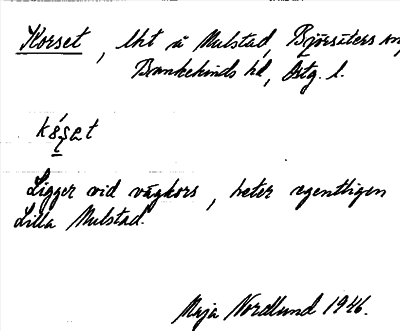 Korset, lht å Mulstad, Björsäters sn,
Bankekinds hd, Östg. l.
Ligger vid vägkors, heter egentligen
Lilla Mulstad.
Maja Nordlund 1946.